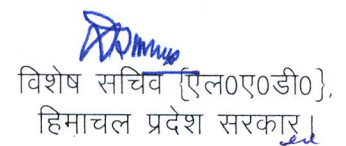 विशेष सचिव {एल०ए०डी०},
हिमाचल प्रदेश सरकार।